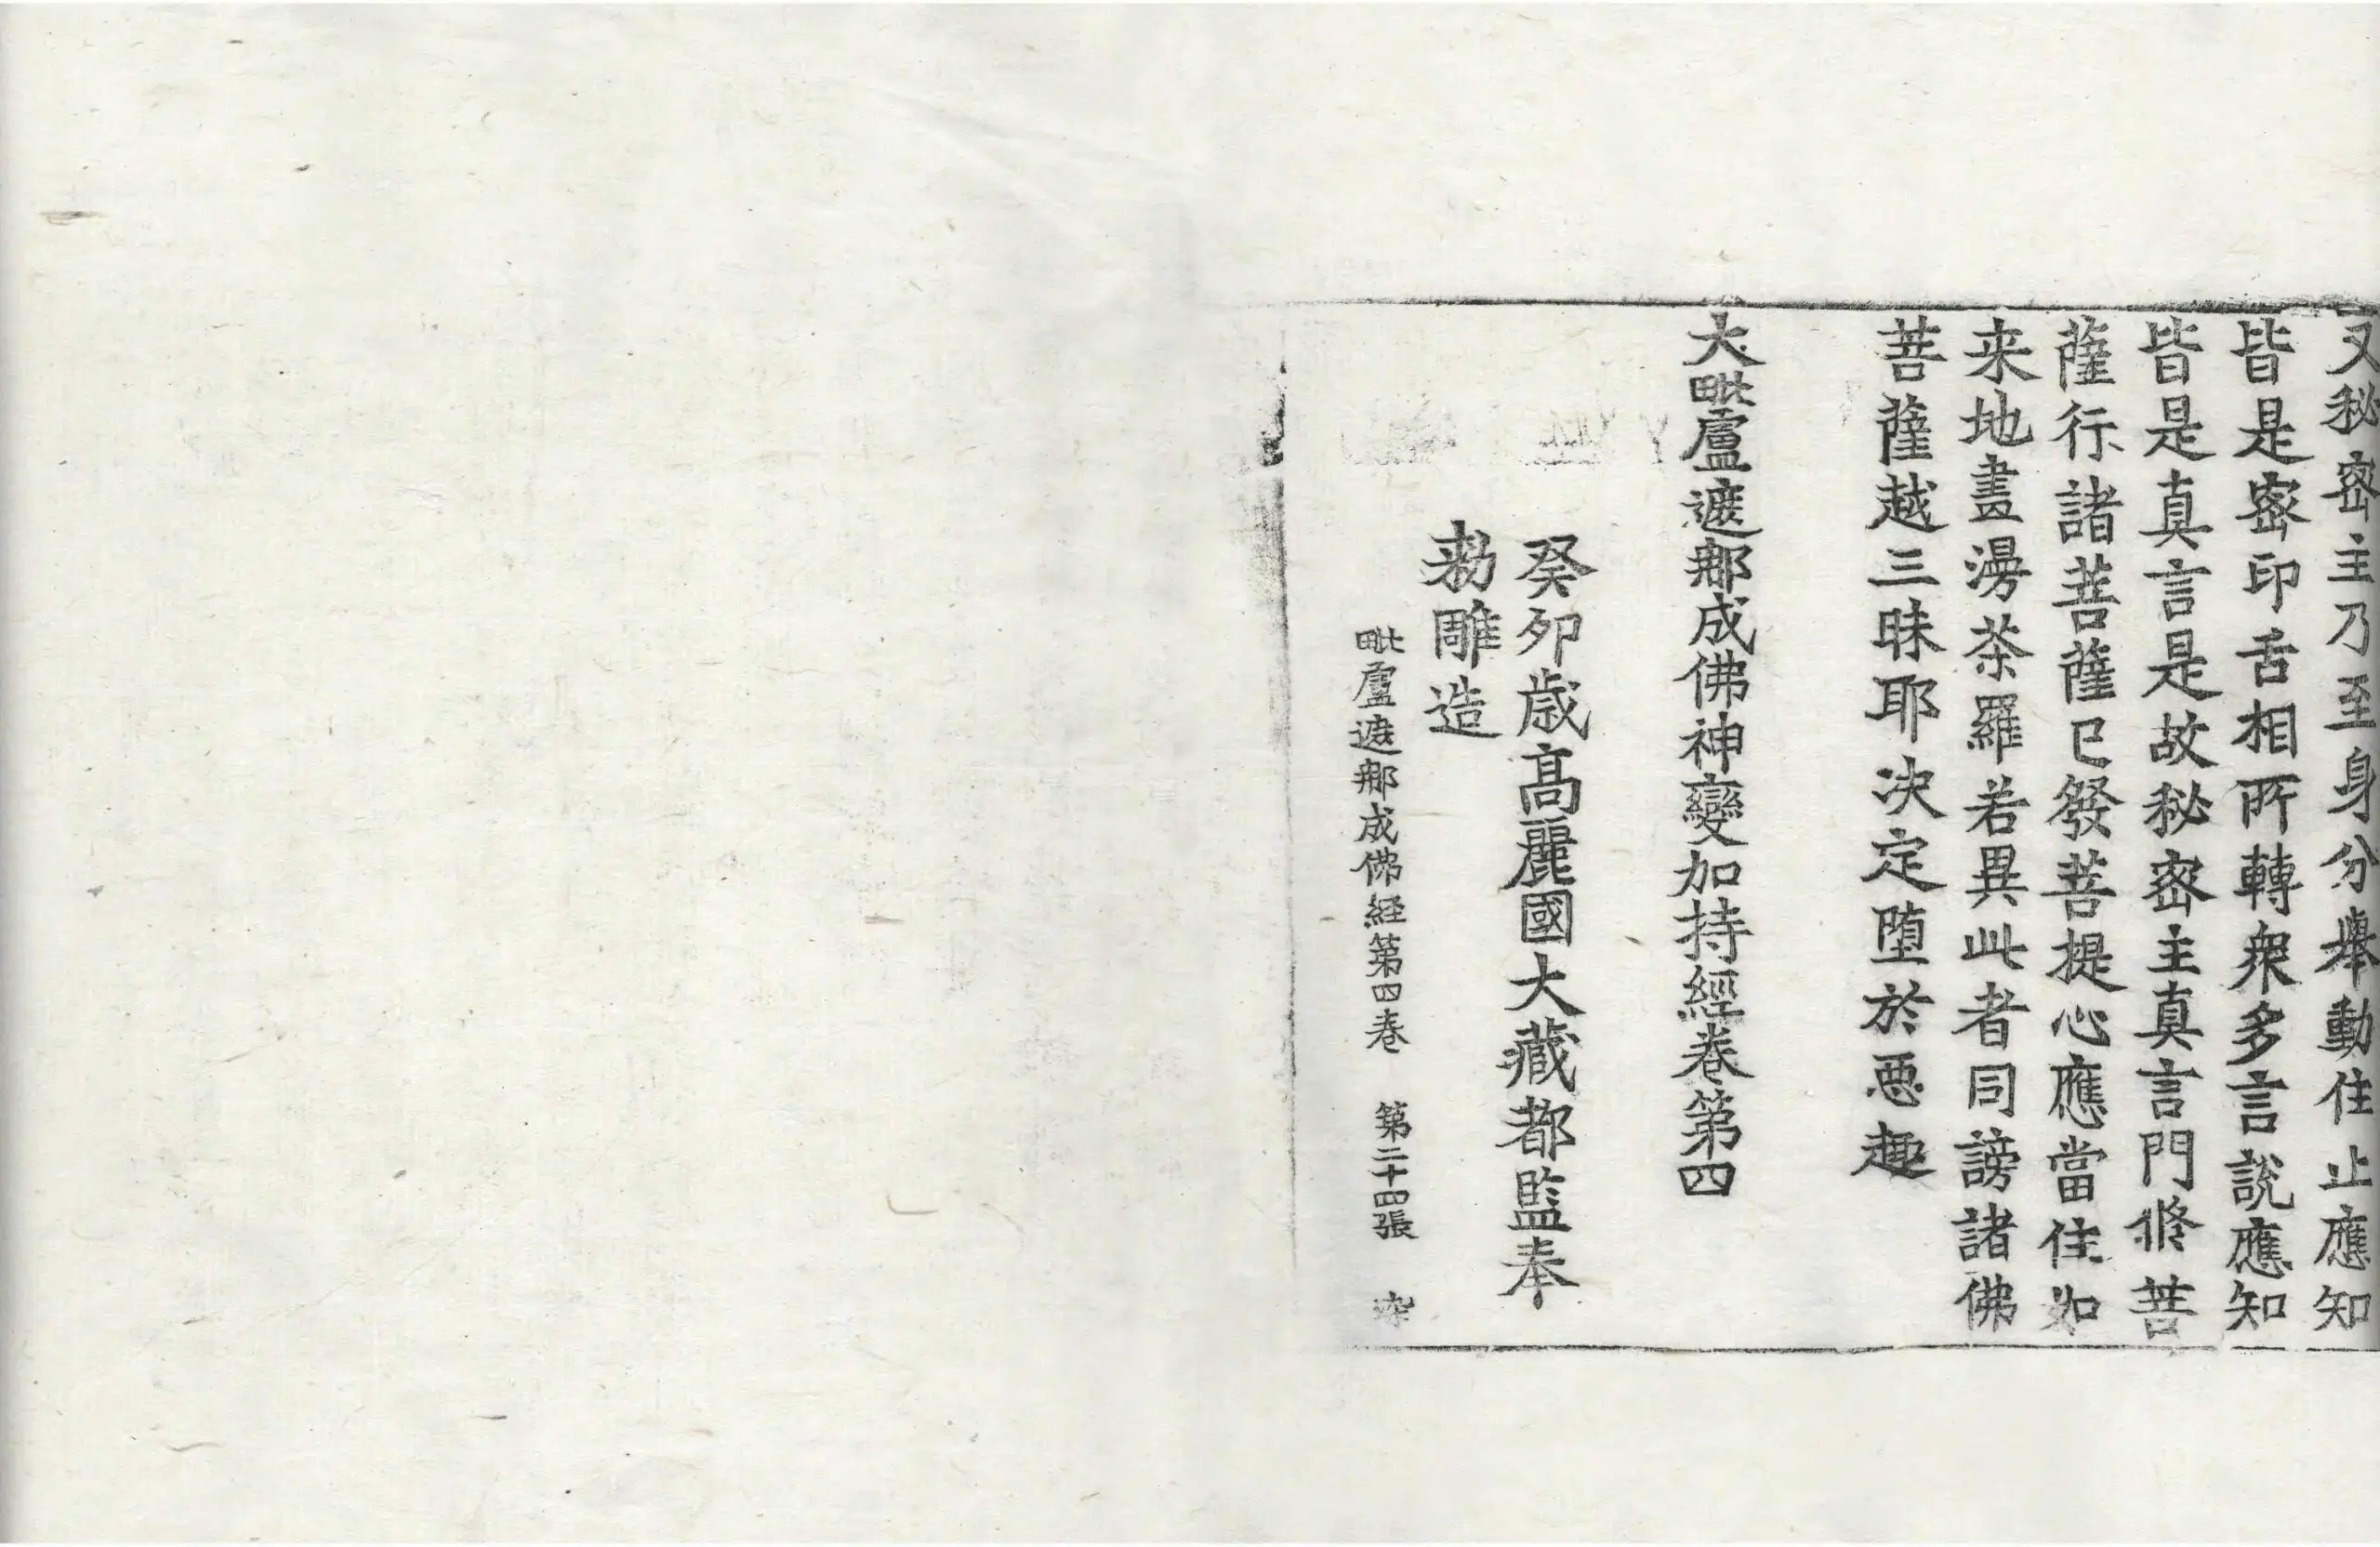 又秘密主乃至身分舉動住止應知
皆是密印舌相所轉衆多言說應知
皆是真言是故秘密主真言門修菩
薩行諸菩薩已發菩提心應當住如
来地畫漫荼羅若異此者同謗諸佛
菩薩越三昧耶决定墮於惡趣
大毗盧遮那成佛神變加持經卷第四
癸卯歲高麗國大藏都監奉
勑雕造
毗盧遮那成佛経第四卷 第二十四張